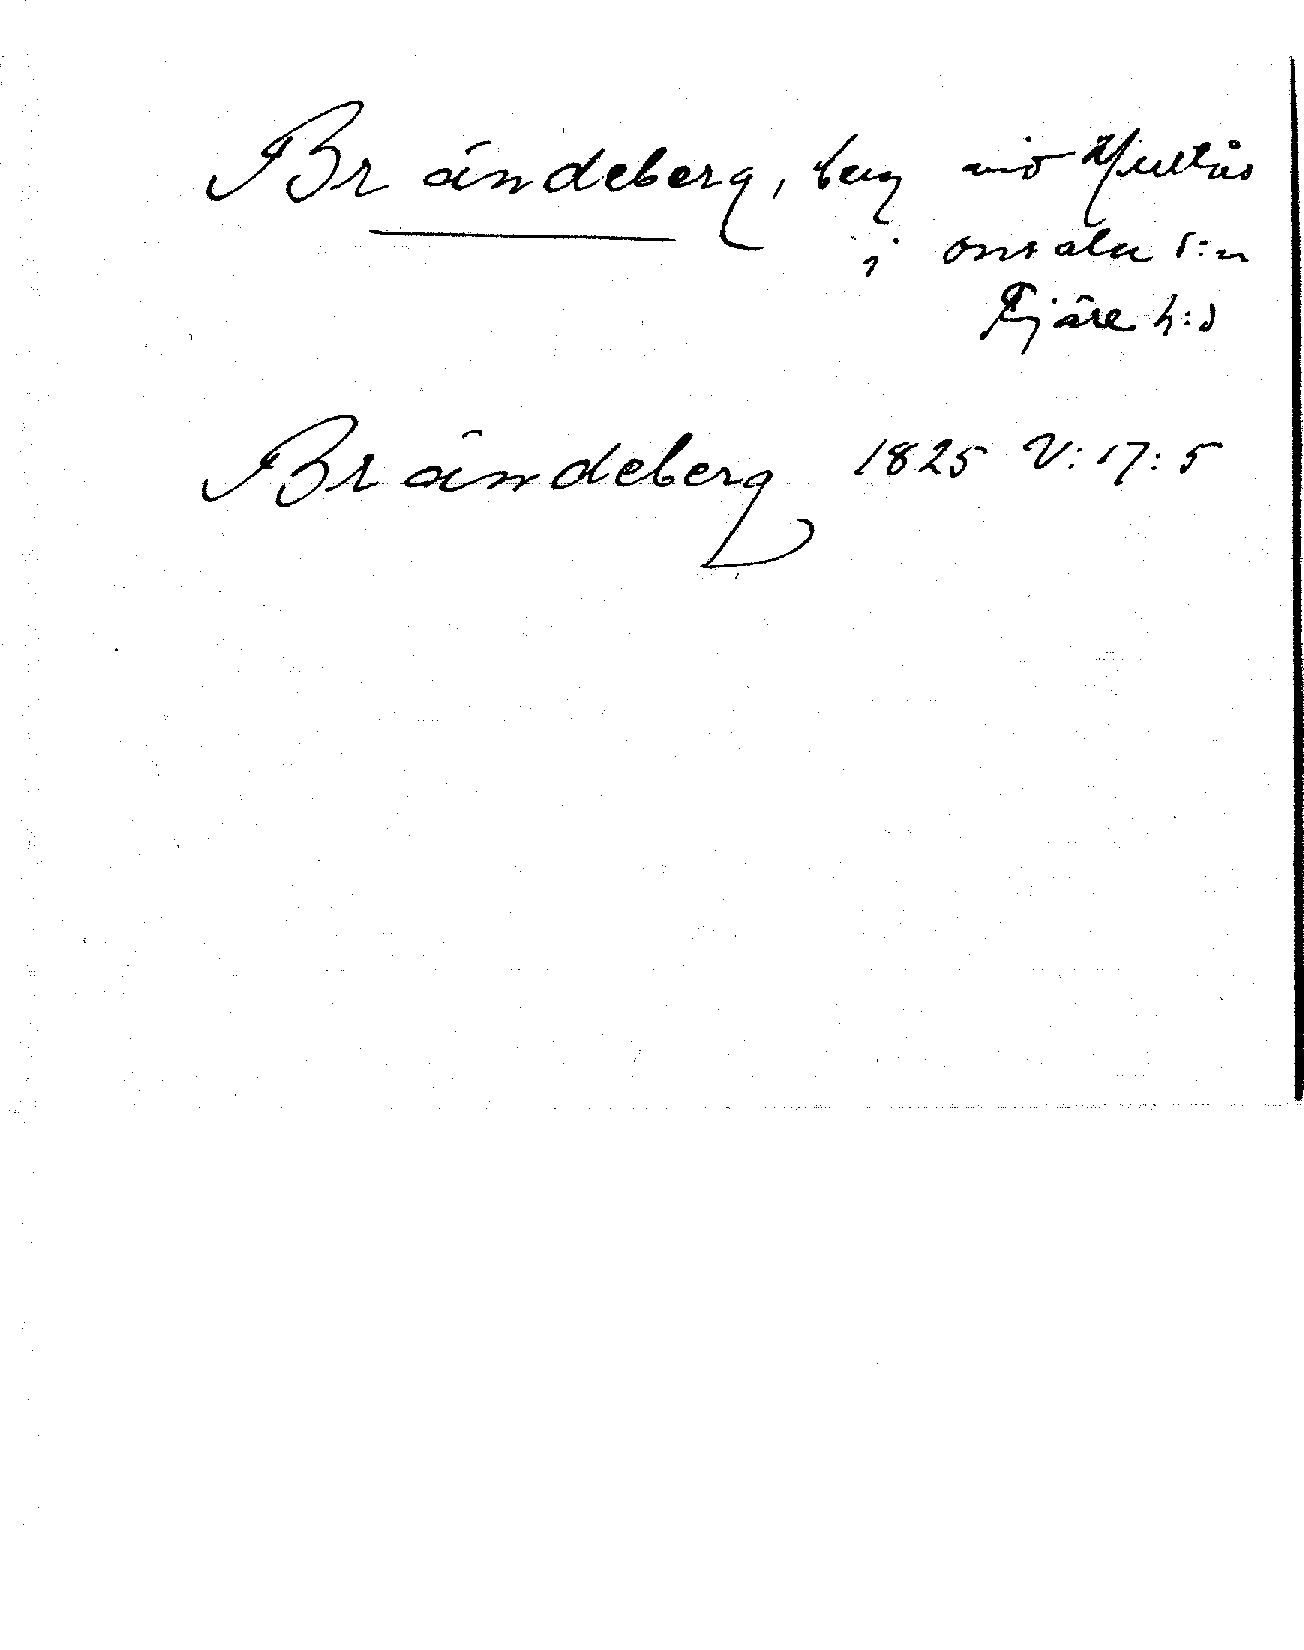 Brändeberg, berg vid Hultås
i Onsala s:n
Fjäre h:d
Brändeberg 1825 V:17:5